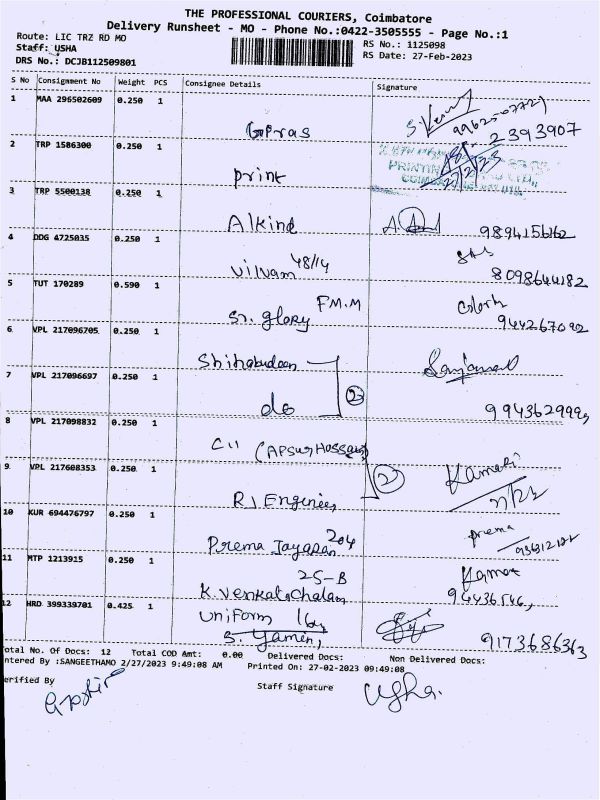 THE PROFESSIONAL COURIERS, Coimbatore
Delivery Runsheet - MO - Phone No.:0422-3505555 - Page No.:1
Route: LIC TRZ RD MO
Staff: USHA
DRS No.: DCJB112509801
RS No.: 1125098
RS Date: 27-Feb-2023
S No Consignment No Weight PCS Consignee Details Signature
1 MAA 296502609 0.250 1
2393907
2 TRP 1586300 0.250 1
print
3 TRP 5500138 0.250 1
Alkind 9894156162
4 DDG 4725035 0.250 1
Vilvam 48/14 8098644182
5 TUT 170289 0.590 1
Sr. glory F.M.M 944267092
6 VPL 217096705 0.250 1
Shihabudeen
7 VPL 217096697 0.250 1
do 2 994362999,
8 VPL 217098832 0.250 1
9 VPL 217608353 0.250 1
2
R) Engineer
10 KUR 694476797 0.250 1
Prema Jayaran 204 prema
11 MTP 1213915 0.250 1
25-B
K. Venkatachalam
12 HRD 399339701 0.425 1
Uniform
S. Yamen, 9173686363
Total No. Of Docs: 12 Total COD Amt: 0.00 Delivered Docs: Non Delivered Docs:
ntered By :SANGEETHAMO 2/27/2023 9:49:08 AM Printed On: 27-02-2023 09:49:08
erified By Staff Signature
Usha.